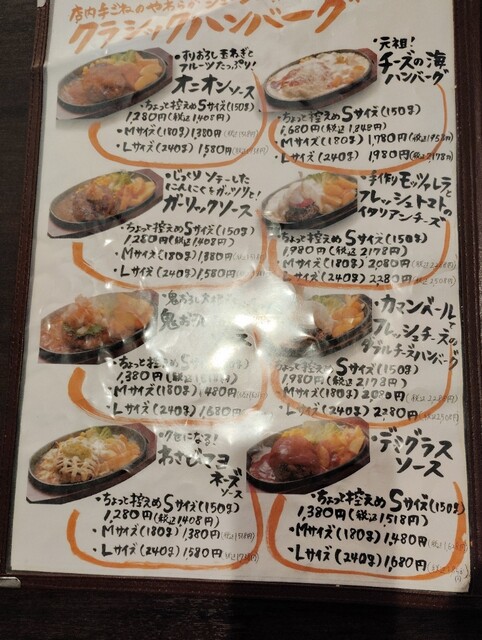 店内手ごねのやわらか
クラシックハンバーグ
・すりおろし玉ねぎと
フルーツたっぷり!
オニオンソース
・ちょっと控えめSサイズ(150g)
1,280円(税込1,408円)
・Mサイズ(180g)1,380円
・Lサイズ(240g)1,580円
・元祖!
チーズの海
ハンバーグ
・ちょっと控えめSサイズ(150g)
1,680円(税込1,848円)
・Mサイズ(180g)1,780円(税込1958円)
・Lサイズ(240g)1980円(税込2178円)
・じっくりソテーした
にんにくをガッツリと!
ガーリックソース
・ちょっと控えめSサイズ(150g)
1,280円(税込1,408円)
・Mサイズ(180g)1,380円
・Lサイズ(240g)1,580円
・手作りモッツァレラと
フレッシュトマトの
イタリアンチーズ
・ちょっと控えめSサイズ(150g)
1,980円(税込2178円)
・Mサイズ(180g)2,080円
・Lサイズ(240g)2280円
・鬼おろし
鬼おろし
ス
・ちょっと控えめSサイズ
1,380円(税込1518円)
・Mサイズ(180g)1,480円
・Lサイズ(240g)1,680円
・カマンベールと
フレッシュチーズの
ダブルチーズハンバーグ
・ちょっと控えめSサイズ(150g)
1,980円(税込2178円)
・Mサイズ(180g)2,080円
・Lサイズ(240g)2,280円
・クセになる!
わさびマヨ
ネーズ
ソース
・ちょっと控えめSサイズ(150g)
1,280円(税込1,408円)
・Mサイズ(180g)1380円
・Lサイズ(240g)1580円
・デミグラス
ソース
・ちょっと控えめSサイズ(150g)
1,380円(税込1,518円)
・Mサイズ(180g)1,480円
・Lサイズ(240g)1,680円